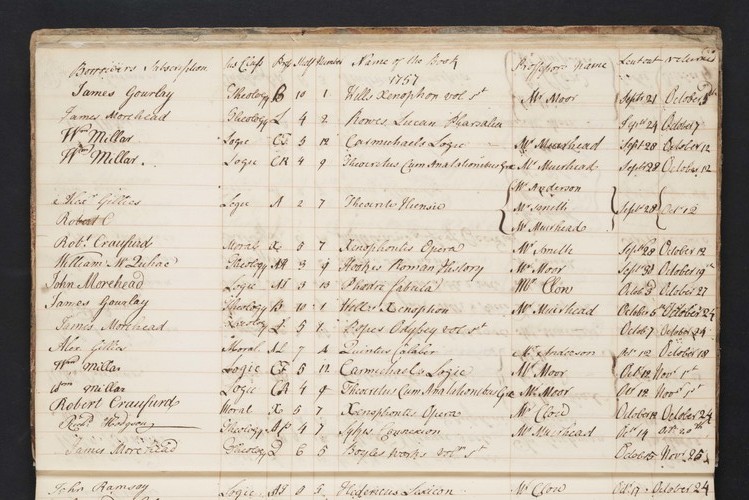 Borrowers Subscription his Class Press Shelf Number Name of the Book Professors Name Lent out returned
1757
James Gourlay Theology B 10 1 Wells Xenophon vol 1st Mr Moor Septr 21 October 5
James Morehead Theology L 4 2 Rowes Lucan Pharsalia Sept 24 October 7
Wm Millar Logic CF 5 12 Carmichaels Logic Mr Muirhead Septr 28 October 12
Wm Millar Logic CR 4 9 Theocretus Cum Mr Muirhead Septr 28 October 12
Mr Anderson
Alexr Gillies Logic A 2 7 Mr Smith Septr 28 Octr 12
Robert C Mr Muirhead
Robt Craufurd Moral X 5 7 Xenophontes Opera Mr Smith Septr 28 October 12
William Theology 3 9 Hookes Roman History Mr Moor October 19th
John Morehead Logic 3 13 Phedri fabula Mr Clow Octob 3 October 27
James Gourlay Theology B 10 1 Wells Xenophon Mr Muirhead October 5 October 24
James Morehead L 5 1 Popes Odyssey vol 1st Octob 7 October 24
Alexr Gillies Moral AL 7 4 Quintus Calaber Mr Anderson Octr 12 October 18
Wm Millar Logic CF 5 12 Carmichaels Logic Mr Moor Octr 12 Novr 1st
Wm Millar Logic CR 4 9 Theocretus Cum Mr Moor Octr 12 Novr 1st
Robert Craufurd Moral X 5 7 Xenophontes Opera Mr Clow October 12 October 24
Theology 4 7 Sykes Connexion Mr Muirhead Octr 14 Octr 20th
James Morehead Theology 6 5 Boyles Works vol 1st October 15 Novr 25
John Ramsay Logic 5 Hedericus Lexicon Mr Clow Octr 17 October 24